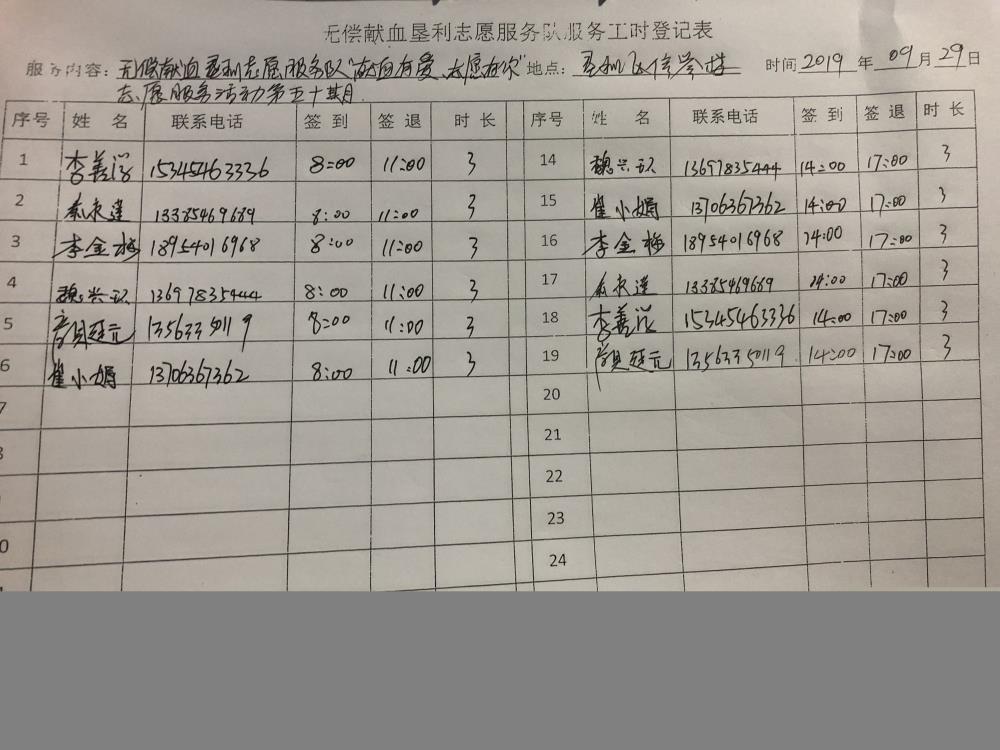 无偿献血垦利志愿服务队服务工时登记表
服务内容：无偿献血垦利志愿服务队"献血有爱、志愿有你" 地点：垦利区 时间 2019 年 09 月 29 日
志愿服务活动第五十期
序号 姓 名 联系电话 签 到 签 退 时 长 序号 姓 名 联系电话 签 到 签 退 时 长
1 李善谔 15345463336 8:00 11:00 3 14 魏兴 13697835444 14:00 17:00 3
2 13385469689 8:00 11:00 3 15 崔小娟 13706367362 14:00 17:00 3
3 李金梅 18954016968 8:00 11:00 3 16 李金梅 18954016968 14:00 17:00 3
4 魏兴 13697835444 8:00 11:00 3 17 13385469689 14:00 17:00 3
5 延元 13563350119 8:00 11:00 3 18 李善 15345463336 14:00 17:00 3
6 崔小娟 13706367362 8:00 11:00 3 19 延元 13563350119 14:00 17:00 3
7 20
21
22
23
0 24